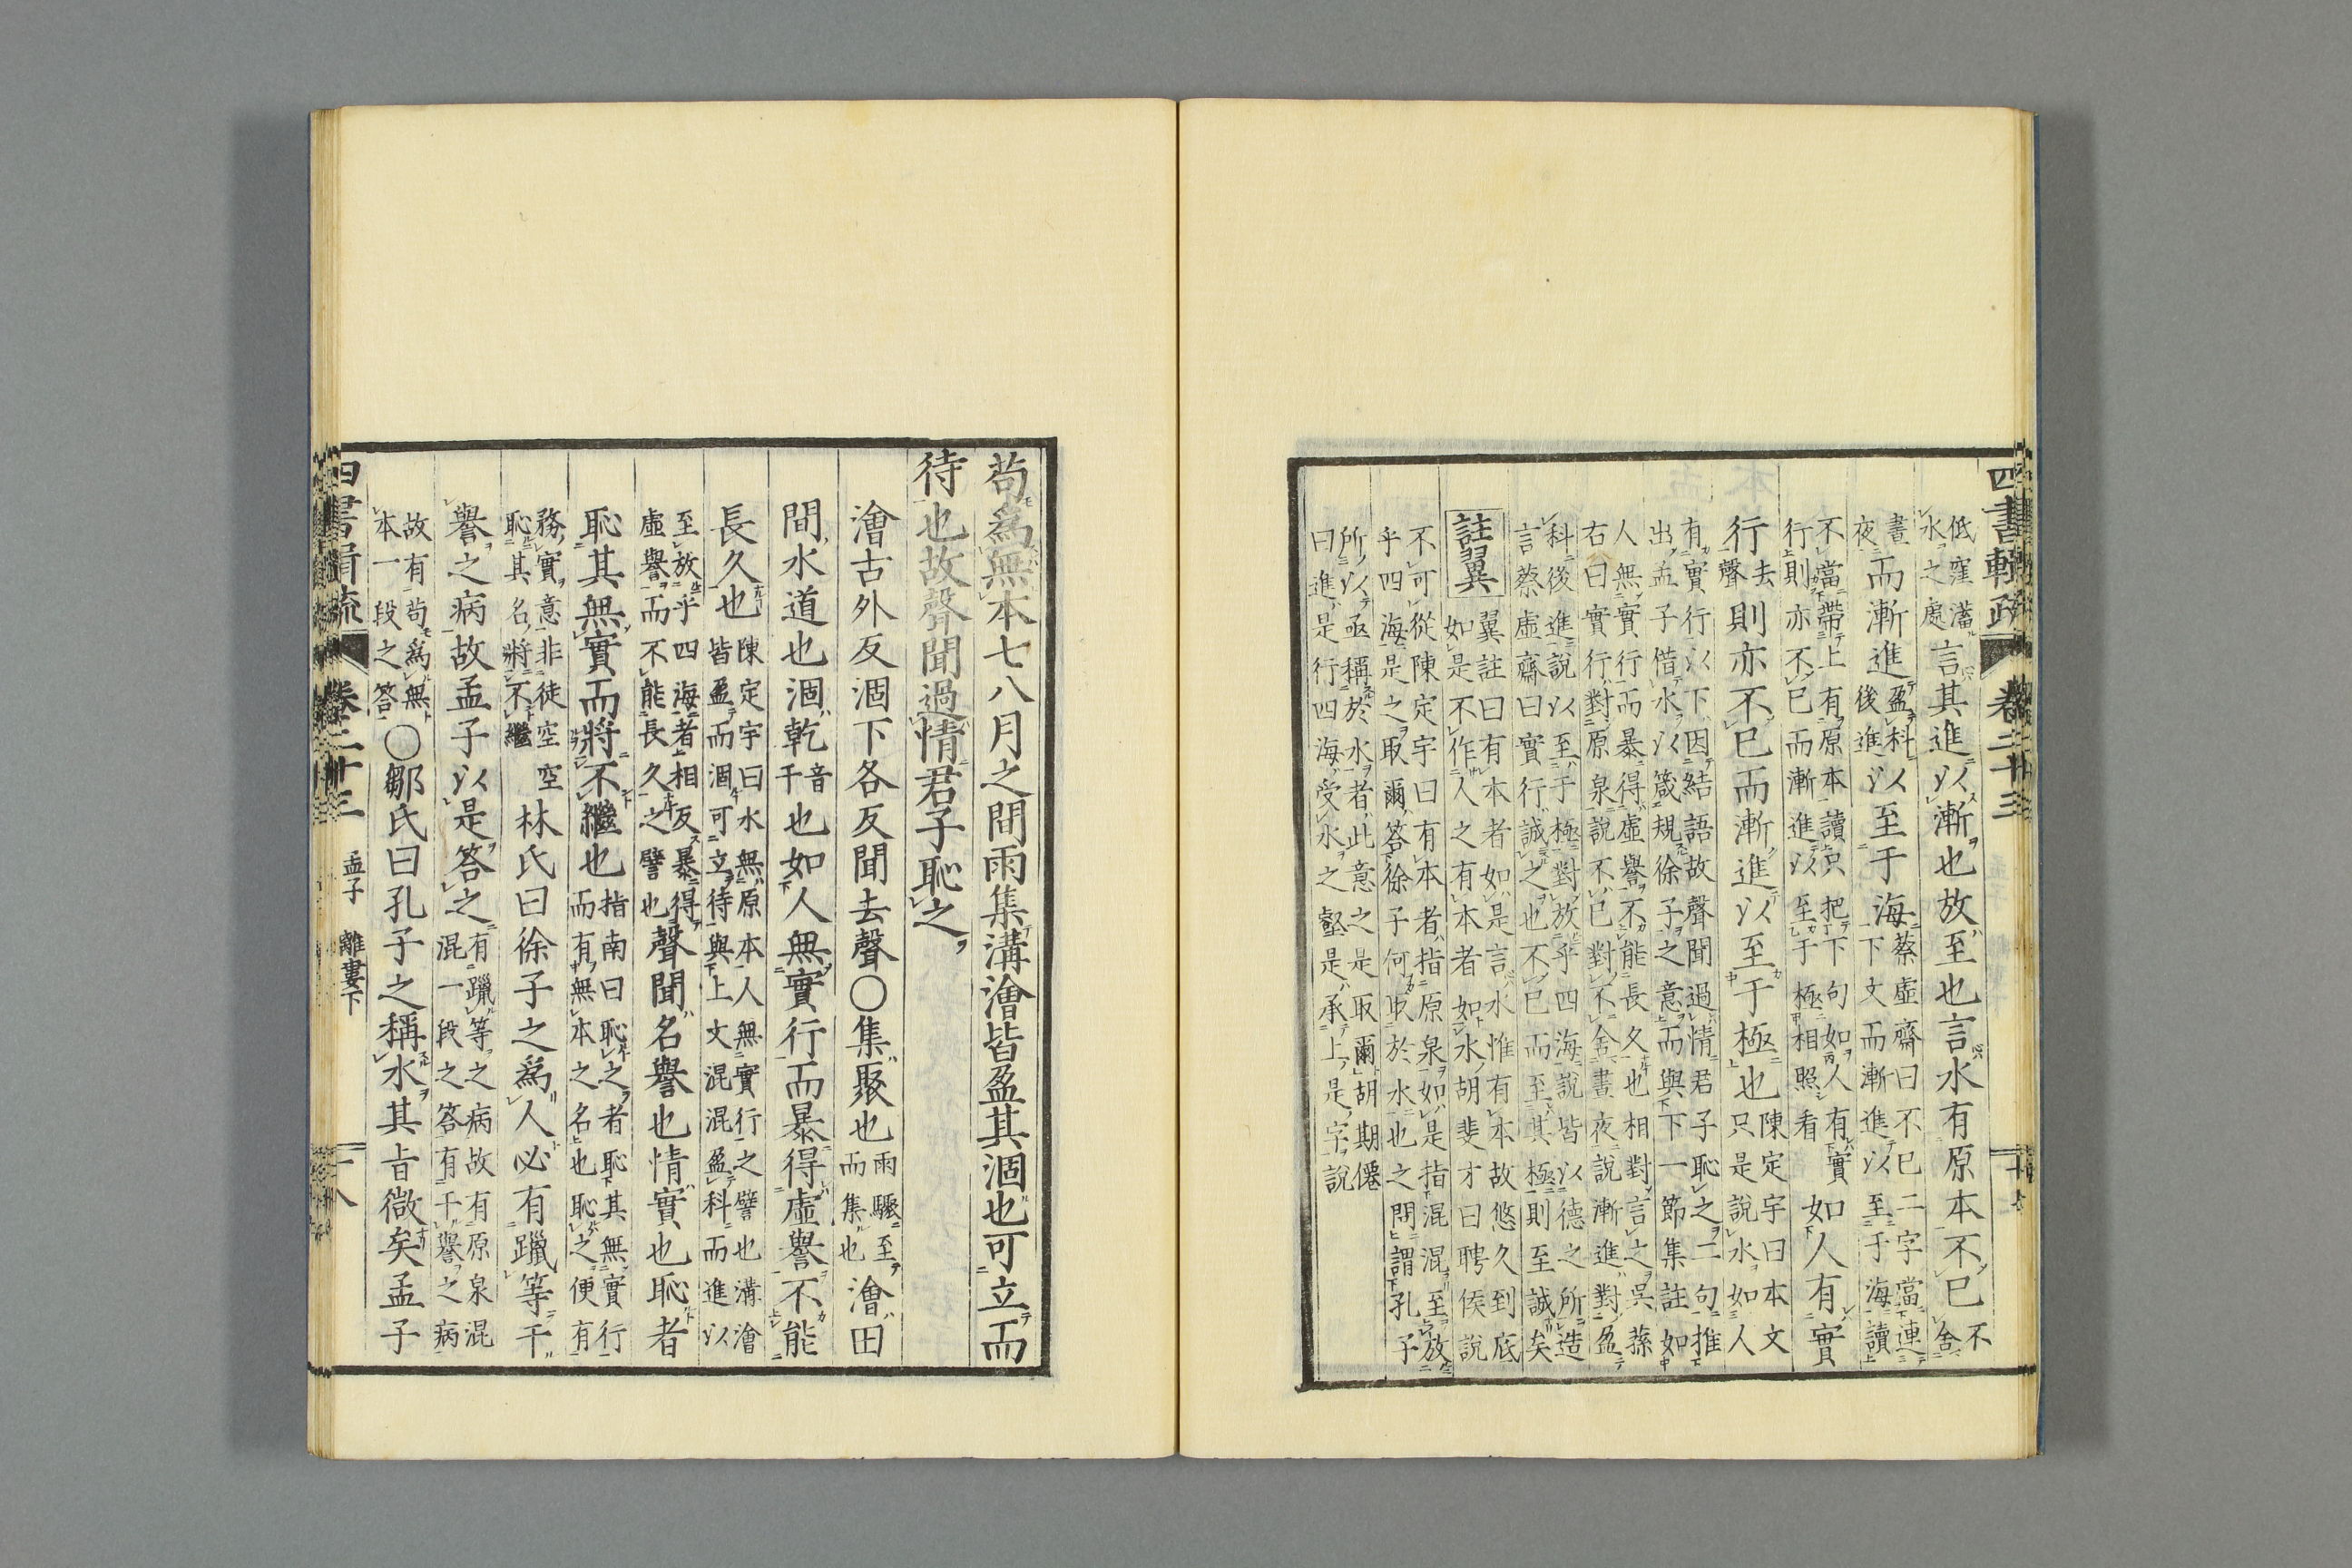 四書輯疏 卷二十三 十七
低窪瀦水之處言其進以漸也故至也言水有原本不已不舍
晝夜而漸進盈科後進以至于海蔡虛齋曰不已二字當連下文而漸進以至于海讀
不當帶上有原本讀只把下句如人有實行則亦不已而漸進以至于極相照看如人有實
行去聲則亦不已而漸進以至于極也陳定宇曰本文只是說水如人
有實行以下因結語故聲聞過情君子恥之二句推出孟子借水以箴規徐子之意而與下一節集註如
人無實行而暴得虛譽不能長久也相對言之吳蓀右曰實行對原泉說不已對不舍晝夜說漸進對盈
科後進說以至于極對放乎四海說皆以德之所造言蔡虛齋曰實行誠之也不已而至其極則至誠矣
註翼 翼註曰有本者如是言水惟有本故悠久到底如是不作人之有本者如水胡斐才曰聘侯說
不可從陳定宇曰有本者指原泉如是指混混至放乎四海是之取爾答徐子何取於水也之問謂孔子
所以亟稱於水者此意之是取爾胡期僊曰進是行四海受水之壑是承上是字說
苟爲無本七八月之間雨集溝澮皆盈其涸也可立而
待也故聲聞過情君子恥之
澮古外反涸下各反聞去聲○集聚也雨驟至而集也澮田
間水道也涸乾音干也如人無實行而暴得虛譽不能
長久也陳定宇曰水無原本人無實行之譬也溝澮皆盈而涸可立待與上文混混盈科而進以
至放乎四海者相反暴得虛譽而不能長久之譬也聲聞名譽也情實也恥者
恥其無實而將不繼也指南曰恥之者恥其無實行而有無本之名也恥之便有
務實意非徒空空恥其名將不繼林氏曰徐子之爲人必有躐等干
譽之病故孟子以是答之有躐等之病故有原泉混混一段之答有干譽之病
故有苟爲無本一段之答○鄒氏曰孔子之稱水其旨微矣孟子
四書輯疏 卷二十三 孟子 離婁下 十八